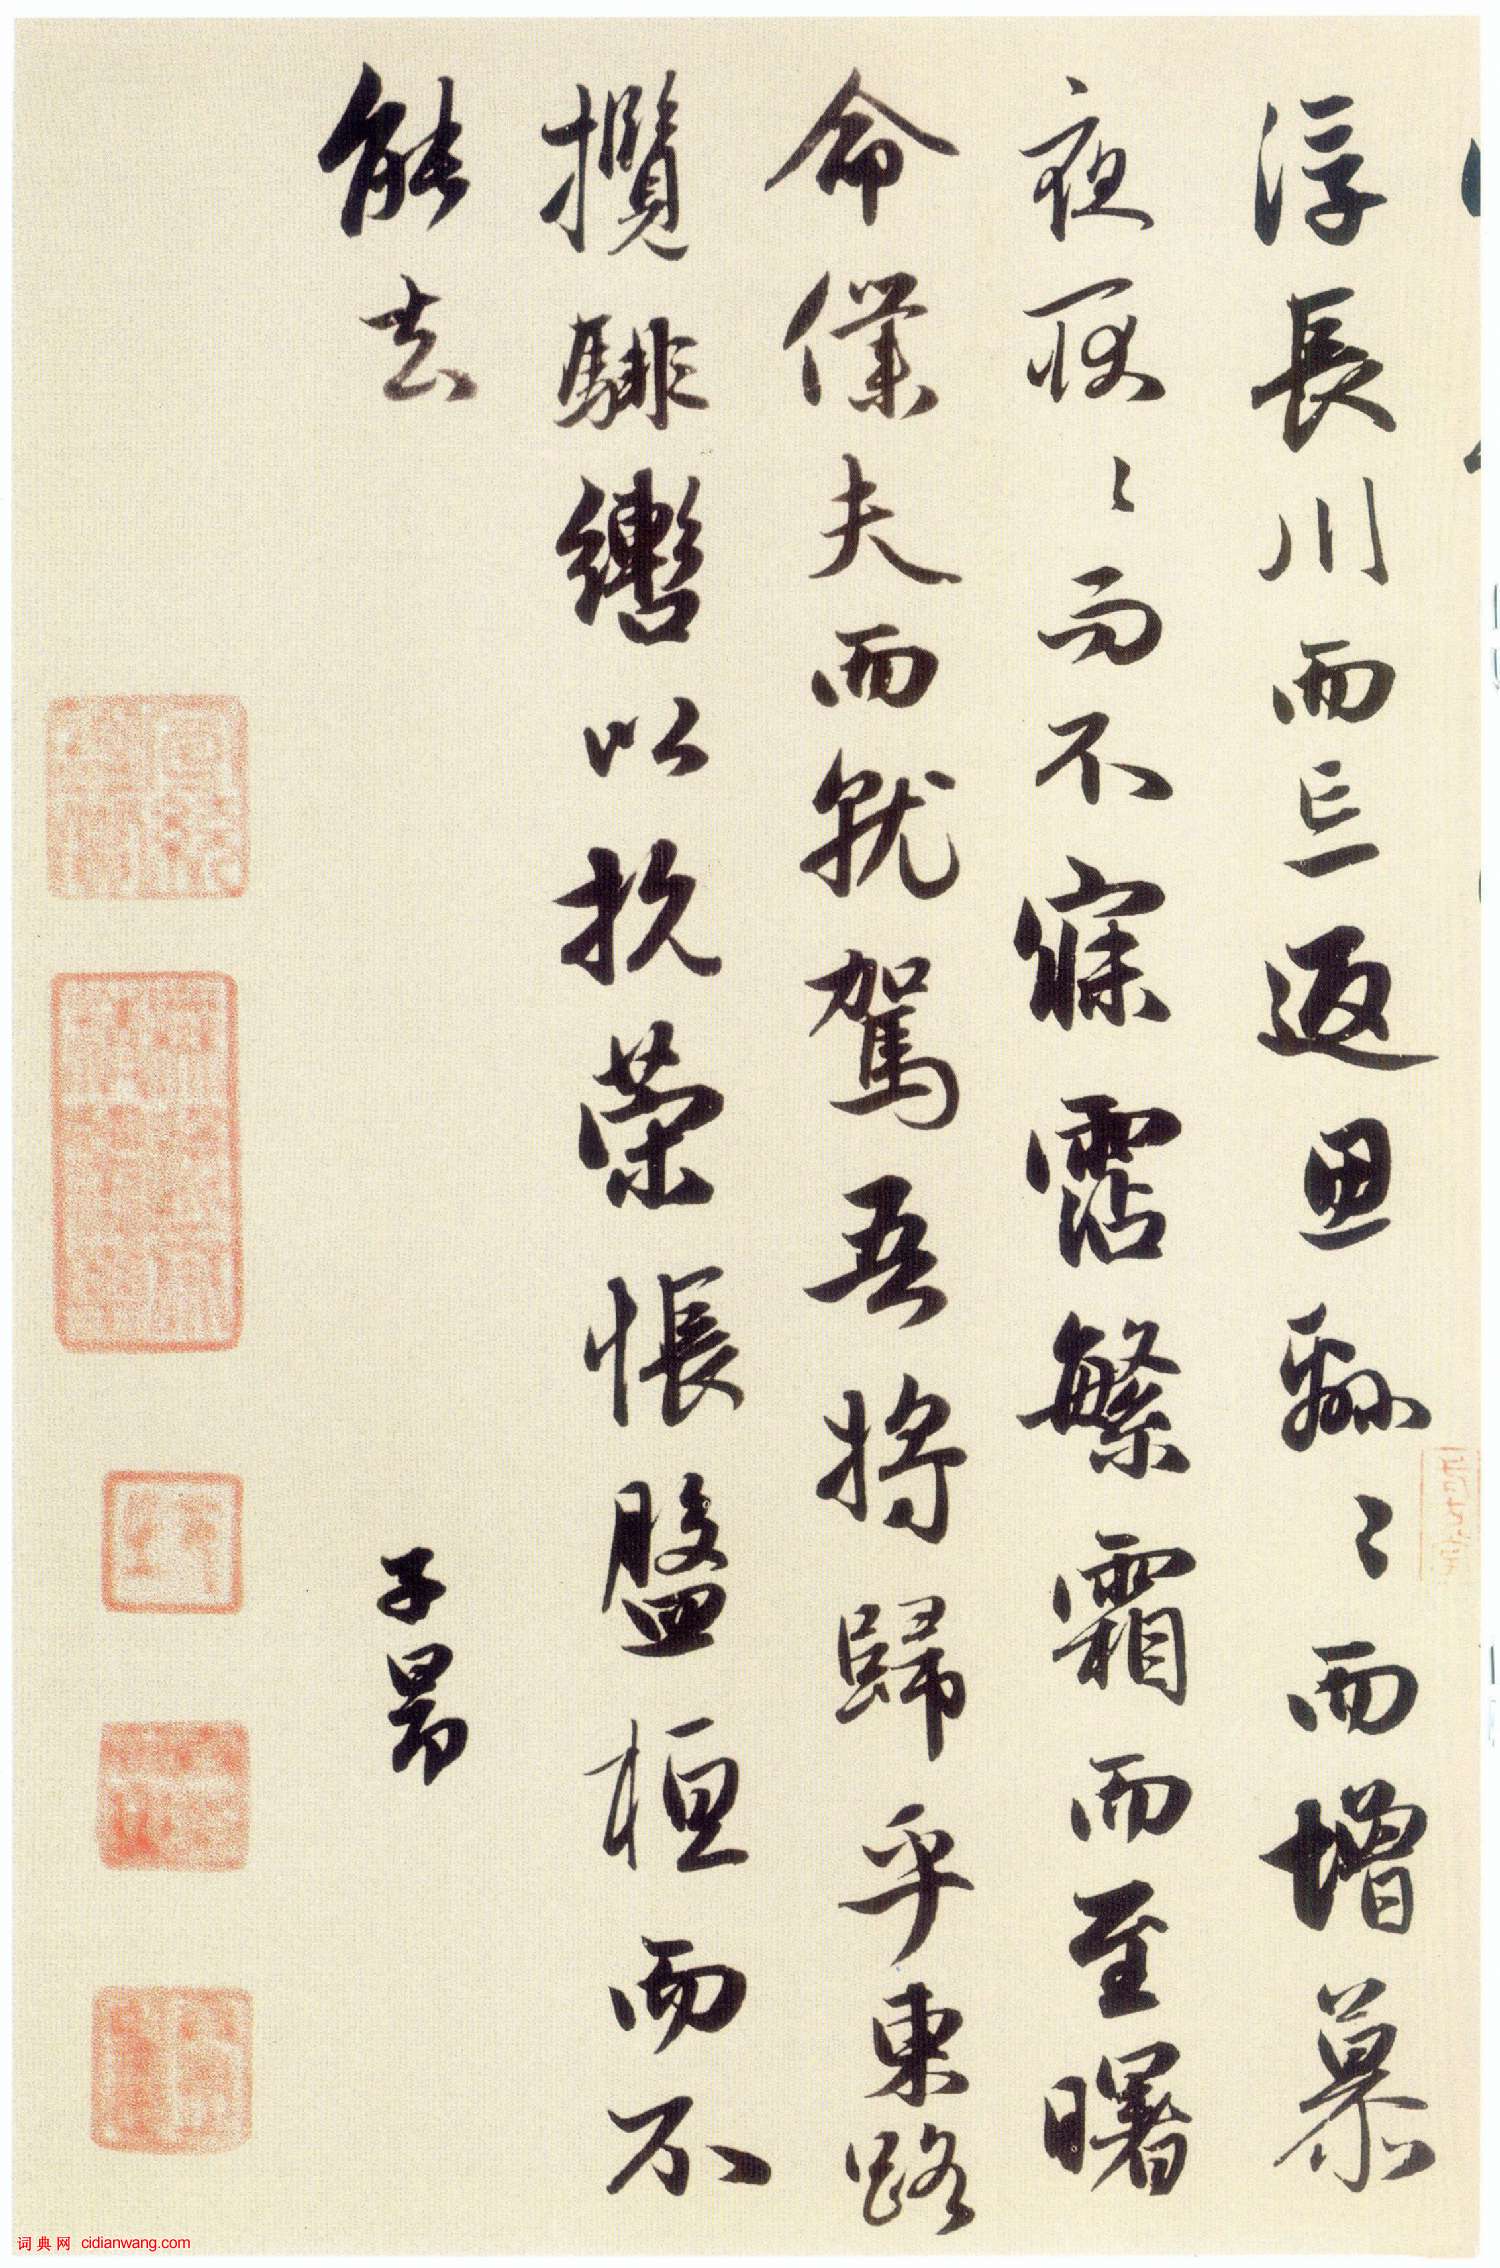 浮長川而忘返思緜〻而增慕
夜耿〻而不寐霑繁霜而至曙
命僕夫而就駕吾將歸乎東路
攬騑轡以抗策悵盤桓而不
能去
子昂
词典网 cidianwang.com